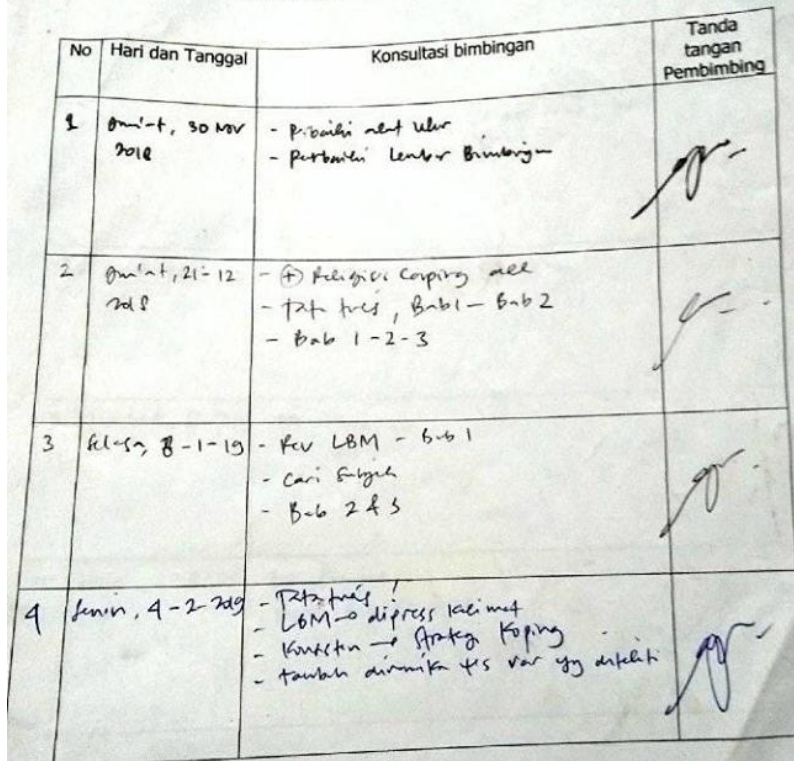 No Hari dan Tanggal Konsultasi bimbingan Tanda tangan Pembimbing
1 Jum'at, 30 Nov - Perbaiki alat ukur
2018 - Perbaiki Lembar Bimbingan
2 Jum'at, 21-12 - (+) Religius Coping
2018 - Tata tulis, Bab 1 - Bab 2
- Bab 1-2-3
3 Selasa, 8-1-19 - Rev LBM - Bab 1
- Cari Subjek
- Bab 2 & 3
4 Senin, 4-2-2019 - Tata tulis!
- LBM → dipress kalimat
- Konsisten → Strategi Koping
- tambah dinamika var yg diteliti